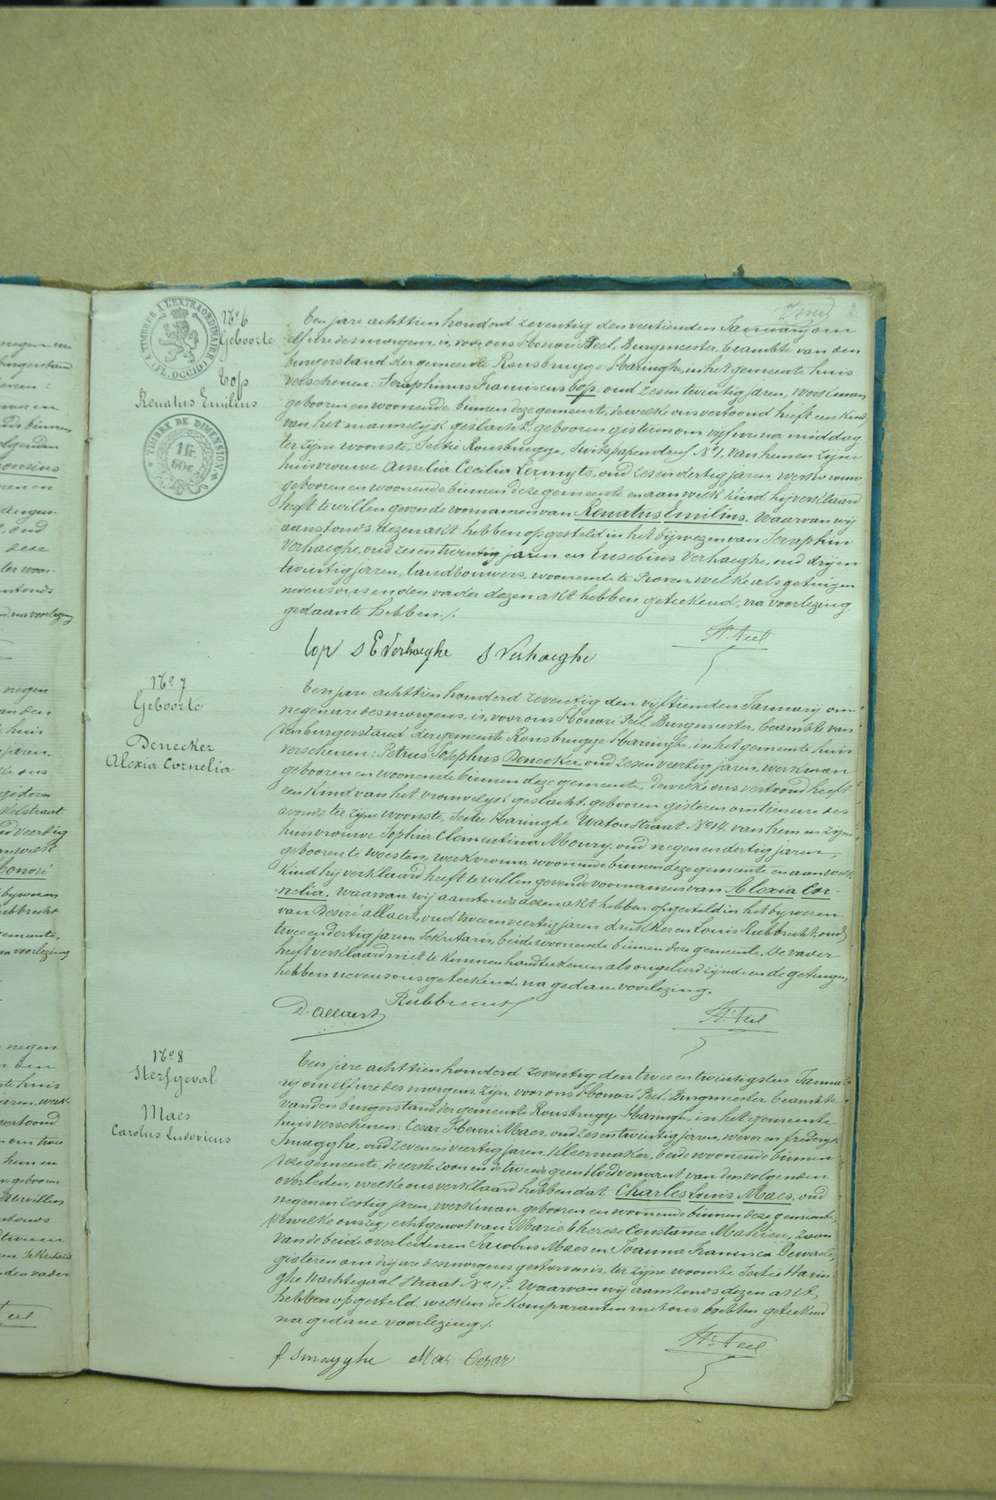 TIMBRE A L'EXTRAORDINAIRE
(FL. OCCID)
No 6
Geboorte
Top
Renatus Emilius
TIMBRE DE DIMENSION
1 fr
Een jare achttien honderd zeventig den veertienden Januarij om
elf ure des morgens is, voor ons Honoré Peel, Burgmeester, beambte van den
burgerstand der gemeente Rousbrugge-Haringhe, in het gemeente huis
verschenen: Seraphinus Franciscus Top, oud zes en twintig jaren, werkman
geboren en woonende binnen deze gemeente, dewelke ons vertoond heeft een kind
van het mannelijk geslacht, geboren gisteren om vijf ure na middag
ter zijne woonste, Sectie Rousbrugge, No 1, van hem en zijne
huisvrouwe Amelia Cecilia Lermyte, oud zes en dertig jaren, werkvrouw
geboren en woonende binnen deze gemeente en aan welk kind hij verklaard
heeft te willen geven de voornamen van Renatus Emilius. Waarvan wij
aanstonds dezen akt hebben opgesteld in het bijwezen van Seraphin
Verhaeghe, oud zes en twintig jaren en Eusebius Verhaeghe, oud drij en
twintig jaren, landbouwers, woonende te Proven welke als getuigen
nevens ons en den vader dezen akt hebben geteekend, na voorlezing
gedaan te hebben./.
Top S E Verhaeghe S Verhaeghe
Hre Peel
No 7
Geboorte
Denecker
Alexia Cornelia
Een jare achttien honderd zeventig den vijftienden Januarij om
negen ure des morgens, is, voor ons Honoré Peel, Burgmeester, beambte van
den burgerstand der gemeente Rousbrugge-Haringhe, in het gemeente huis
verschenen: Petrus Josephus Denecker, oud zes en veertig jaren, werkman
geboren en woonende binnen deze gemeente, dewelke ons vertoond heeft
een kind van het vrouwelijk geslacht, geboren gisteren om tien ure des
avonds ter zijne woonste, Sectie Haringhe Watou Straat No 14, van hem en zijne
huisvrouwe Sophia Clementina Meury, oud negen en dertig jaren,
geboren te Woesten, werkvrouw, woonende binnen deze gemeente en aan welk
kind hij verklaard heeft te willen geven de voornamen van Alexia Cor-
nelia. Waarvan wij aanstonds dezen akt hebben opgesteld in het bijwezen
van Desiré Allaert, oud twee en veertig jaren drukker en Louis Rubbrecht, oud
twee en dertig jaren Sekretaris, beide woonende binnen deze gemeente. De vader
heeft verklaard niet te kunnen handteekenen als ongeleerd zijnde en de getuigen
hebben nevens ons geteekend, na gedane voorlezing.
D. Allaert Rubbrecht
Hre Peel
No 8
Sterfgeval
Maes
Carolus Ludovicus
Een jare achttien honderd zeventig den twee en twintigsten Janua-
rij om elf ure des morgens, zijn, voor ons Honoré Peel, Burgmeester, beambte
van den burgerstand der gemeente Rousbrugge-Haringhe, in het gemeente
huis verschenen: Cezar Henri Maes, oud zes en twintig jaren, wever en Frederik
Smagghe, oud zeven en veertig jaren, kleermaker, beide woonende binnen
deze gemeente, de eerste zoon en de tweede geen bloedverwant van den volgenden
overleden, welke ons verklaard hebben dat Charles Louis Maes, oud
negen en zestig jaren, werkman, geboren en woonende binnen deze gemeente,
echtgenoot van Marie Therese Constance Mahieu, zoon
van de beide overledenen Jacobus Maes en Joanna Francisca Dewaele,
gisteren om drij ure des morgens gestorven is, ter zijne woonste Sectie Harin-
ghe Nachtegaal Straat No 17. Waarvan wij aanstonds dezen akt
hebben opgesteld welken de komparanten met ons hebben geteekend
na gedane voorlezing./.
f Smagghe Maes Cezar
Hre Peel